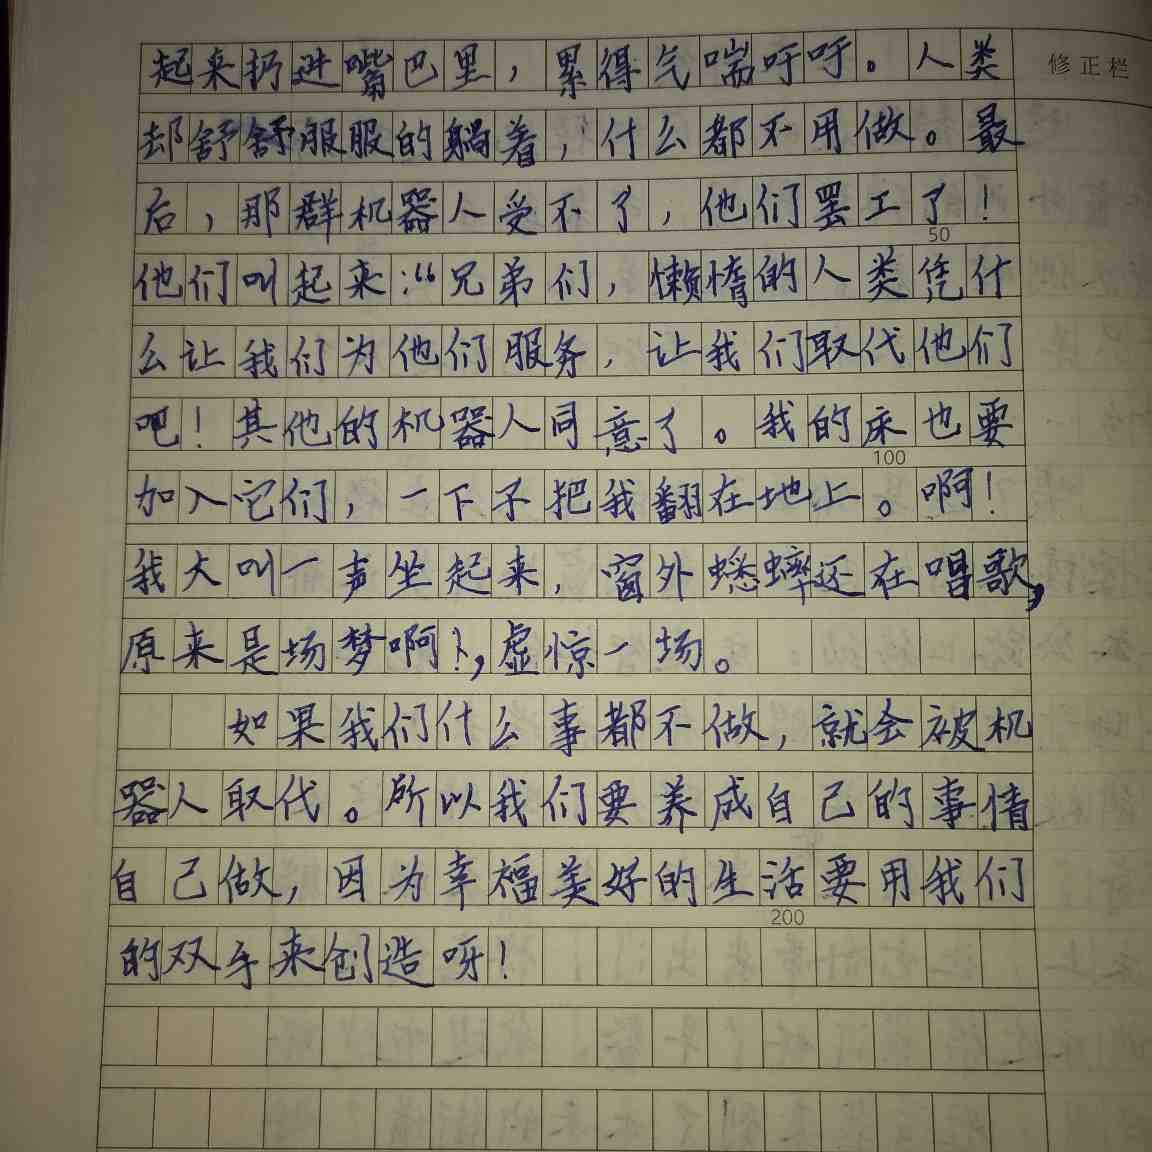 起来扔进嘴巴里，累得气喘吁吁。人类
修正栏
却舒舒服服的躺着，什么都不用做。最
后，那群机器人受不了，他们罢工了！
50
他们叫起来：“兄弟们，懒惰的人类凭什
么让我们为他们服务，让我们取代他们
吧！其他的机器人同意了。我的床也要
100
加入它们，一下子把我翻在地上。啊！
我大叫一声坐起来，窗外蟋蟀还在唱歌，
原来是场梦啊！，虚惊一场。
如果我们什么事都不做，就会被机
器人取代。所以我们要养成自己的事情
自己做，因为幸福美好的生活要用我们
200
的双手来创造呀！